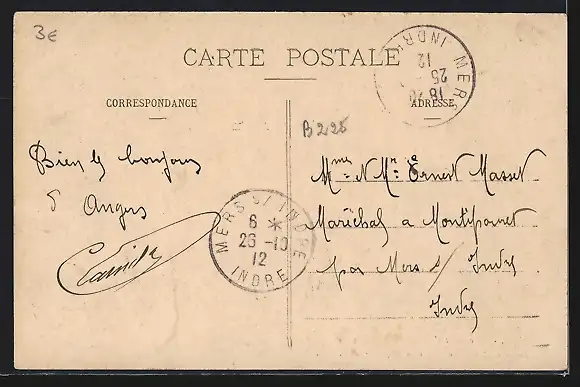 3€
CARTE POSTALE
CORRESPONDANCE
ADRESSE
B225
Bien le bonjour
d' Angers
Camille
Mme & Mr Ernest Masset
Maréchal a Montipouret
par Mers s/ Indre
Indre
MERS S/ INDRE
6 *
26 -10
12
INDRE
MER
INDRE
18
25
12